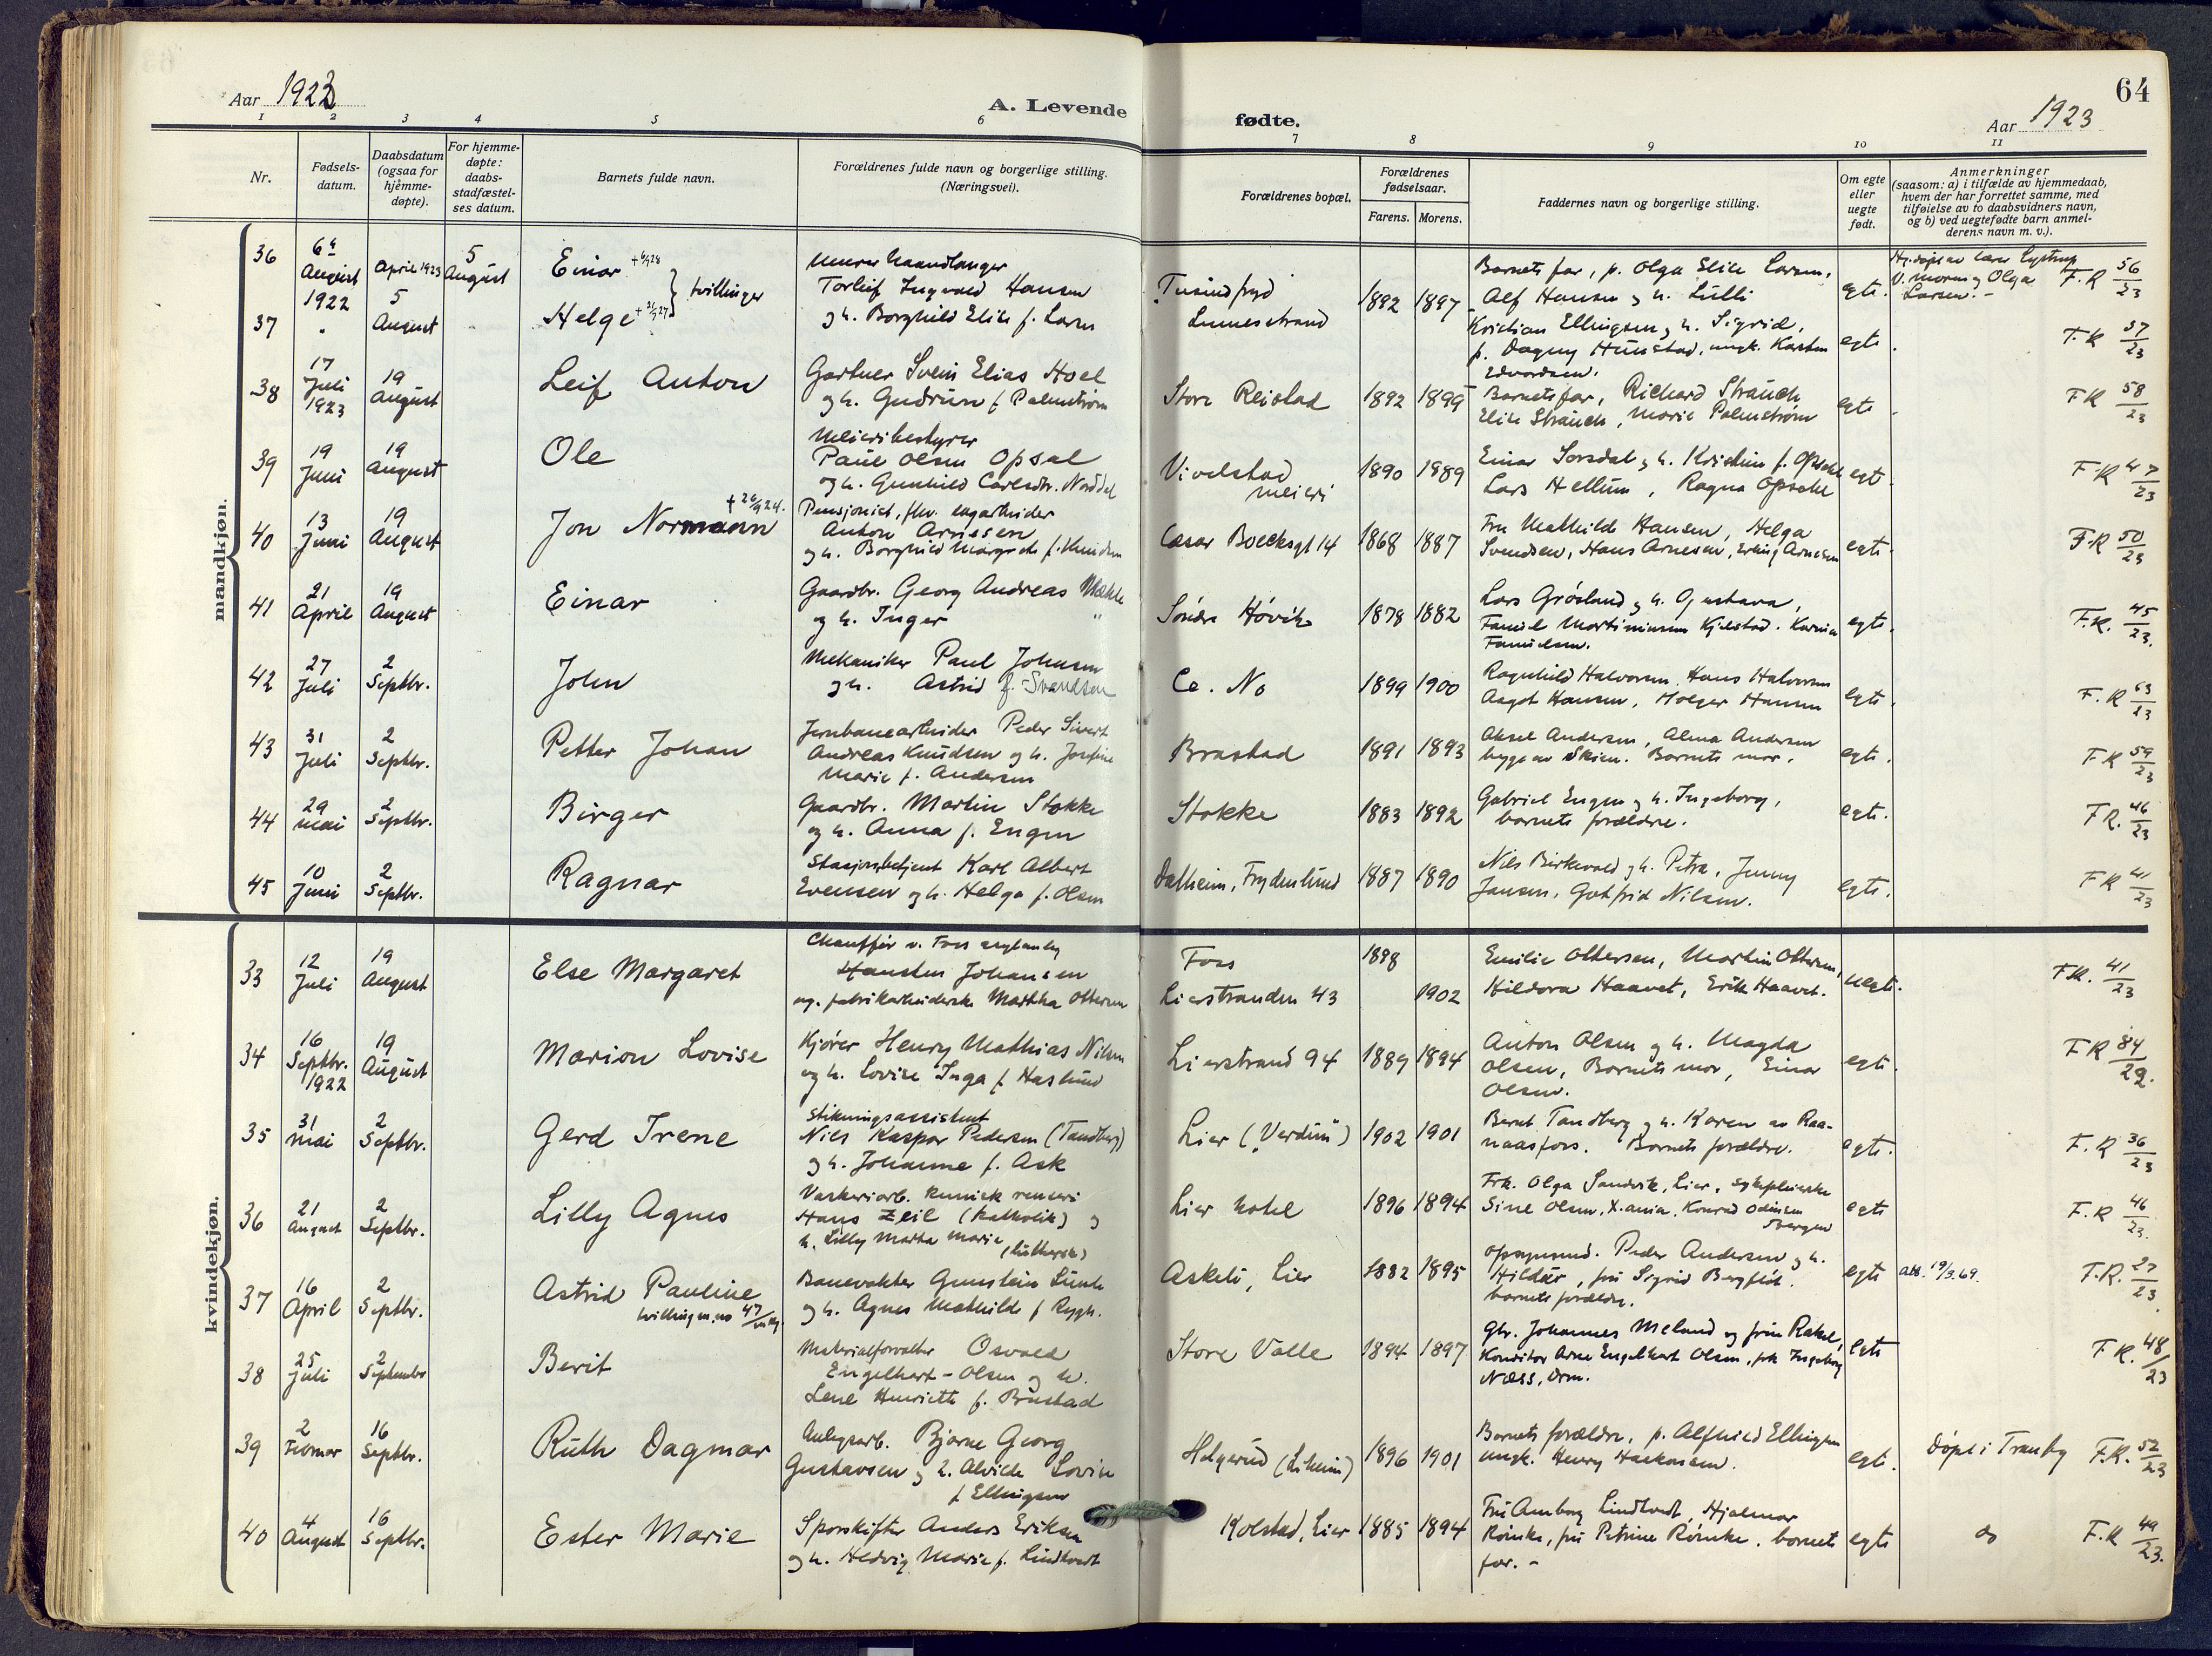 64
Aar 1923
A. Levende fødte.
Aar 1923
1 2 3 4 5 6 7 8 9 10 11
Nr.
Fødselsdatum.
Daabsdatum (ogsaa for hjemmedøpte).
For hjemmedøpte: daabsstadfæstelses datum.
Barnets fulde navn.
Forældrenes fulde navn og borgerlige stilling. (Næringsvei).
Forældrenes bopæl.
Forældrenes fødselsaar.
Farens. Morens.
Faddernes navn og borgerlige stilling.
Om egte eller uegte født.
Anmerkninger
(saasom: a) i tilfælde av hjemmedaab, hvem der har forrettet samme, med tilføielse av to daabsvidners navn, og b) ved uegtefødte barn anmelderens navn m. v.).
mandkjøn.
36 August 1922 April 1923 5 August Einar tvillinger
Torleif Ingvald Hansen 1892 1897 Barnets far, p. Olga Elise Larsen, Alf Hansen og h. Lulli egte. F.R 56/23
37 5 August Helge og h. Borghild Elise f. Larsen
Kristian Ellingsen og h. Sigrid, p. Dagny Hunstad, ungk. Karsten Edvardsen. egte F.R 57/23
38 17 Juli 1923 19 August Leif Anton Gartner Svein Elias Hoel og h. Gudrun f. Palmstrøm Store Reistad 1892 1899 Barnets far, Richard Strauch Elise Strauch, Marie Palmstrøm egte F.R 58/23
39 19 Juni 19 August Ole Meieribestyrer Paul Olsen Opsal og h. Gunhild Carlsdtr. Norddal Vivelstad meieri 1890 1889 Einar Sorsdal og h. Kristine f. Opsahl Lars Hellum, Ragna Opsahl egt F.R 47/23
40 13 Juni 19 August Jon Normann Pensjonist, Anton Arnesen og h. Borghild Margrethe f. Knudsen Cæsar Boecksgt 14 1868 1887 Fru Mathilde Hansen, Helga Svendsen, Hans Arnesen, Erling Arnesen egte F.R 50/23
41 21 April 19 August Einar Gaardbr. Georg Andreas og h. Inger Søndre Høvik 1878 1882 Lars Grøsland og h. Gustava, egte. F.R. 45/23.
42 27 Juli 2 Septbr. John Mekaniker Paul Johnsen og h. Astrid f. Svendsen Ce. No 1899 1900 Ragnhild Halvorsen. Hans Halvorsen Aagot Hansen, Holger Hansen egte. F.R 63/23
43 31 Juli 2 Septbr. Petter Johan Jernbanearbeider Peder Sivert Andreas Knudsen og h. Josefine Marie f. Andersen Brastad 1891 1893 Aksel Andersen, Alma Andersen begge av Skien. Barnets mor. egte. F.R 59/23
44 29 Mai 2 Septbr. Birger Gaardbr. Martin Stokke og h. Anna f. Engen Stokke 1883 1892 Gabriel Engen og h. Ingeborg, barnets forældre. egte. F.R. 46/23
45 10 Juni 2 Septbr. Ragnar Stasjonsbetjent Karl Albert Evensen og h. Helga f. Olsen Dalheim, Frydenlund 1887 1890 Nils Birkevold og h. Petra, Jenny Jansen, Gotfrid Nilsen. egte. F.R 41/23
kvindekjøn.
33 12 Juli 19 August Else Margaret Chauffør v. Foss Johansen og fabrikarbeiderske Martha Ottersen Foss Lierstranden 43 1898 1902 Emilie Ottersen, Martin Ottersen, Hildora Haavet, Erik Haavet. uegte. F.R. 41/23
34 16 Septbr. 1922 19 August Marion Lovise Kjører Henry Mathias Nilsen og h. Lovise Inga f. Haslund Lierstrand 94 1889 1894 Anton Olsen og h. Magda Olsen, Barnets mor, Einar Olsen. egte. F.R 84/22.
35 31 Mai 2 Septbr. Gerd Irene Stikningsassistent Nils Kaspar Pedersen (Tandberg) og h. Johanne f. Ask Lier ("Verdun") 1902 1901 Bernt Tandberg og h. Karen av Raanaasfoss. Barnets forældre. egte. F.R 36/23
36 21 August 2 Septbr. Lilly Agnes Vaskeriarb. kemisk renseri Hans Zeil (katholik) og h. Lilly Marta Marie (luthersk) Lier hotel 1896 1894 Frk. Olga Sandvik, Lier, sykepleierske Sine Olsen, X.ania. Konrad Odinsen egte F.R 46/23.
37 16 April 2 Septbr. Astrid Pauline Banevokter Gunstein Lunde og h. Agnes Mathilde f. Rygh. Askeli, Lier 1882 1895 Opsynsmd. Peder Andersen og h. Hildur, fru Sigrid Bergfløt. barnets forældre. egte att. 19/3.69. F.R. 27/23.
38 25 Juli 2 September Berit Materialforvalter Osvald Engelhart-Olsen og h. Lene Henriette f. Brustad Store Valle 1894 1897 Gbr. Johannes Meland og frue Rakel, Konditor Arne Engelhart Olsen, frk Ingeborg Næss, Drm. egte F.R. 48/23
39 2 Februar 16 Septbr. Ruth Dagmar Anlegsarb. Bjarne Georg Gustavsen og h. Alvilde Lovise f. Ellingsen Helgerud (Liheim) 1896 1901 Barnets forældre, p. Alfhild Ellingsen ungk. Henry Haakonsen. egte. Døpt i Tranby F.R. 52/23
40 4 August 16 Septbr. Ester Marie Sporskifter Anders Eriksen og h. Hedvig Marie f. Lindtvedt Kolstad, Lier 1885 1894 Fru Amborg Lindtvedt, Hjalmar Rømke, fru Petrine Rømke. barnets far. - egte do F.R 49/23.